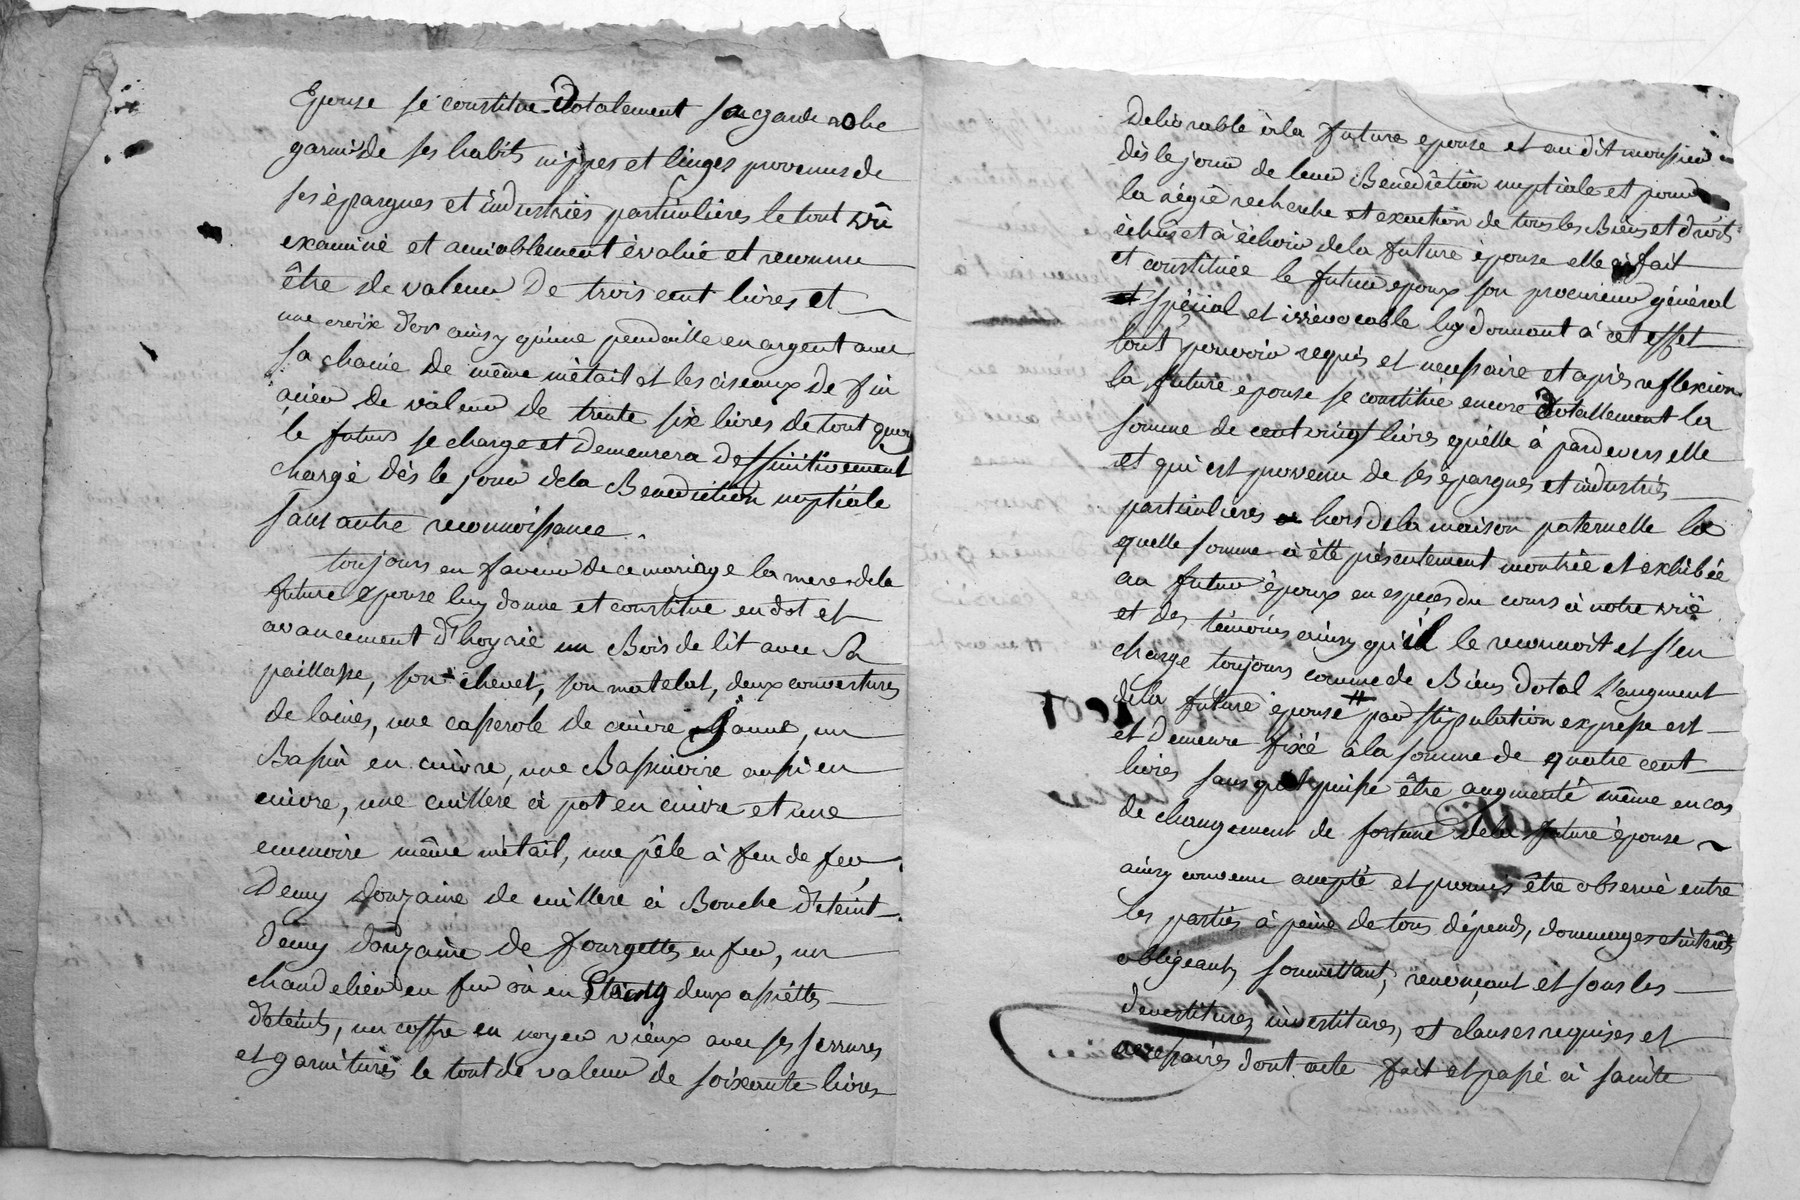 Epouse se constitue Dotalement sa garde robe
garni de ses habits nippes et linges provenus de
ses épargnes et industries particulieres le tout vû
examiné et amiablement évalué et reconnu
être de valeur de trois cent livres et
une croix d'or ainsy qu'une pendeille en argent avec
sa chaine de même métail et les ciseaux de fin
acier de valeur de trente six livres de tout quoy
le futur se charge et demeurera deffinitivement
chargé dès le jour dela Benediction nuptiale
sans autre reconnoissance.
toujours en faveur de ce mariage la mere dela
future epouse luy donne et constitue en dot et
avancement d'hoyrie un Bois de lit avec sa
paillasse, son chevet, son matelat, deux couvertures
de laines, une casserole de cuivre jaune, un
Bassin en cuivre, une Bassinoire aussi en
cuivre, une cuillere à pot en cuivre et une
même métail, une pêle à feu de fer,
Demy douzaine de cuillere à Bouche d'eteint
demy douzaine de fourgettes en fer, un
chandelier en fer où en deux assiettes
d'eteints, un coffre en noyer vieux avec ses serrures
et garnitures le tout de valeur de soixante livres
Delivrable à la future epouse et au dit monsieur
dès le jour de leur Benediction nuptiale et pour
la régie recherche et exaction de tous les Biens et droits
échus et à échoir dela future épouse elle a fait
et constituée le futur epoux son procureur général
et spécial et irrévocable luy donnant à cet effet
tout pouvoir requis et necessaire et après reflexion
la future epouse se constitue encore Dotallement la
somme de cent vingt livres qu'elle à pardevers elle
et qui est provenu de ses épargnes et industries
particulieres hors dela maison paternelle la
quelle somme à été présentement montrée et exhibée
au futur époux en especes du cours à notre vüe
et des témoins ainsy qu'il le reconnoit et s'en
charge toujours comme de Biens dotal L'augment
dela future épouse # par stipulation expresse est
et demeure fixé à la somme de quatre cent
livres sans qu'il puisse être augmenté même en cas
de changement de fortune dela future épouse
ainsy convenu accepté et promis être observé entre
les parties à peine de tous dépends, dommages et intérêts
obligeant, soumettant, renonçant et sous les
devestitures, investitures, et clauses requises et
necessaires dont acte fait et passé à sainte